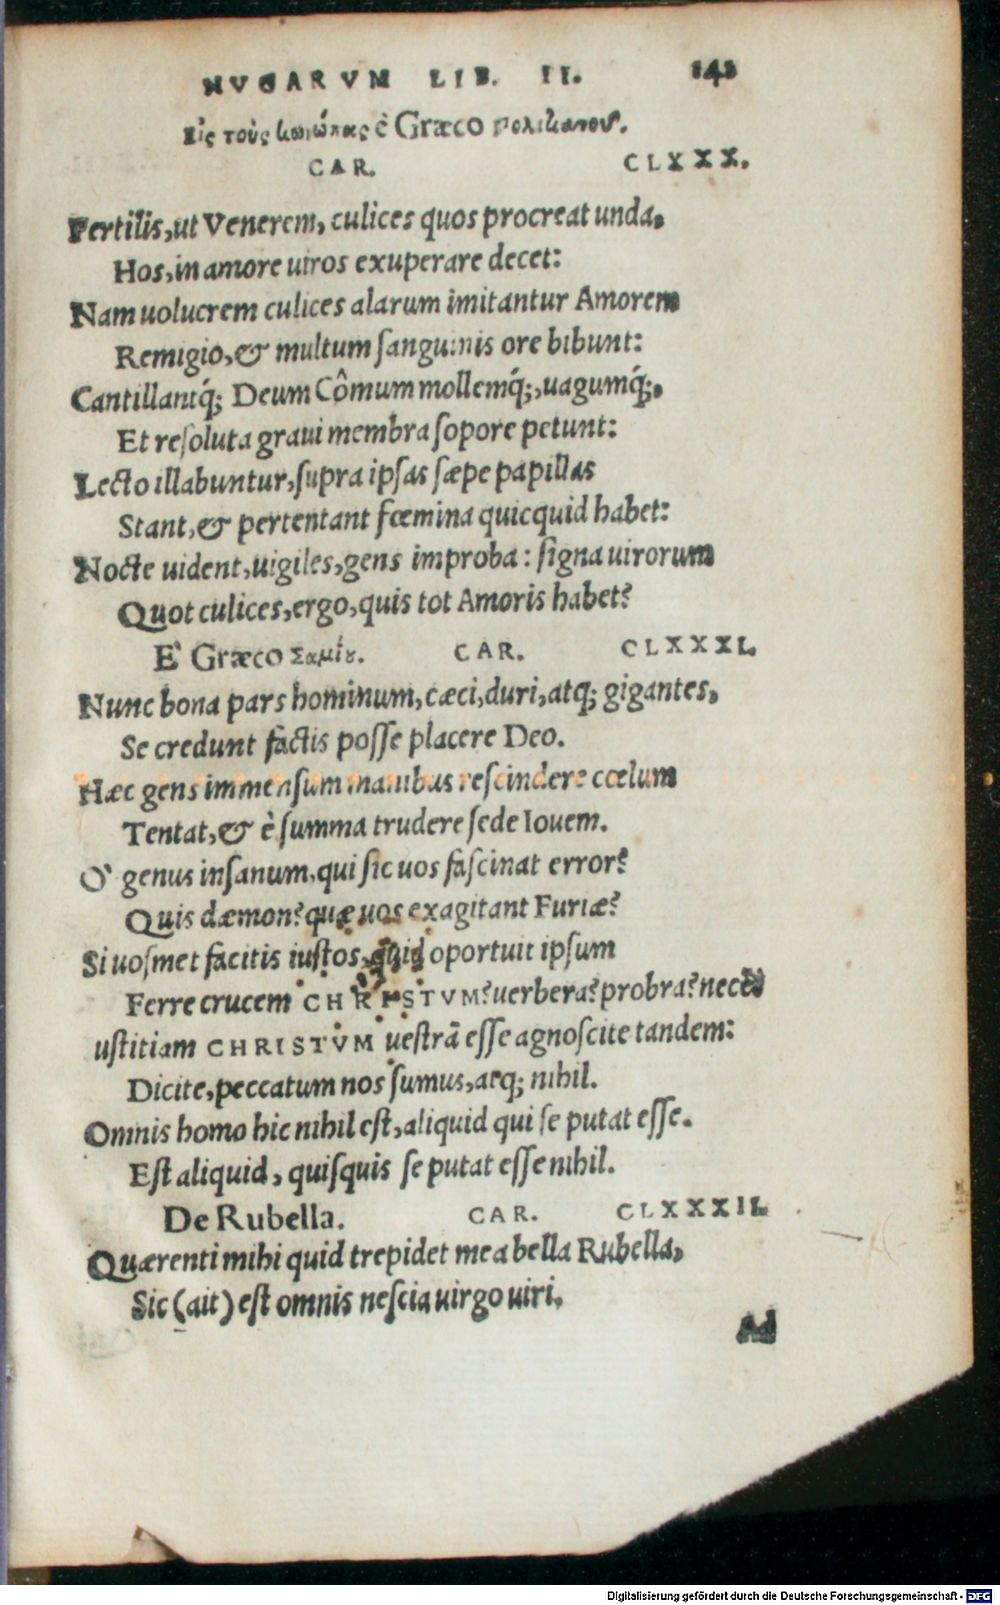 NVGARVM LIB. II. 141
Εἰς τοὺς κωνώπας è Græco πολιτιανοῦ.
CAR. CLXXX.
Fertilis, ut Venerem, culices quos procreat unda,
Hos, in amore uiros exuperare decet:
Nam uolucrem culices alarum imitantur Amorem
Remigio, & multum sanguinis ore bibunt:
Cantillantq́; Deum Cômum mollemq́;, uagumq́;,
Et resoluta graui membra sopore petunt:
Lecto illabuntur, supra ipsas sæpe papillas
Stant, & pertentant fœmina quicquid habet:
Nocte uident, uigiles, gens improba: signa uirorum
Quot culices, ergo, quis tot Amoris habet?
E' Græco Σαμίου. CAR. CLXXXI.
Nunc bona pars hominum, cæci, duri, atq; gigantes,
Se credunt factis posse placere Deo.
Hæc gens immensum manibus rescindere cœlum
Tentat, & è summa trudere sede Iouem.
O' genus insanum, qui sic uos fascinat error?
Quis dæmon? quæ uos exagitant Furiæ?
Si uosmet facitis iustos, quid oportuit ipsum
Ferre crucem CHRISTVM? uerbera? probra? necẽ?
ustitiam CHRISTVM uestrã esse agnoscite tandem:
Dicite, peccatum nos sumus, atq; nihil.
Omnis homo hic nihil est, aliquid qui se putat esse.
Est aliquid, quisquis se putat esse nihil.
De Rubella. CAR. CLXXXII.
Quærenti mihi quid trepidet mea bella Rubella,
Sic (ait) est omnis nescia uirgo uiri.
Ad
Digitalisierung gefördert durch die Deutsche Forschungsgemeinschaft - DFG